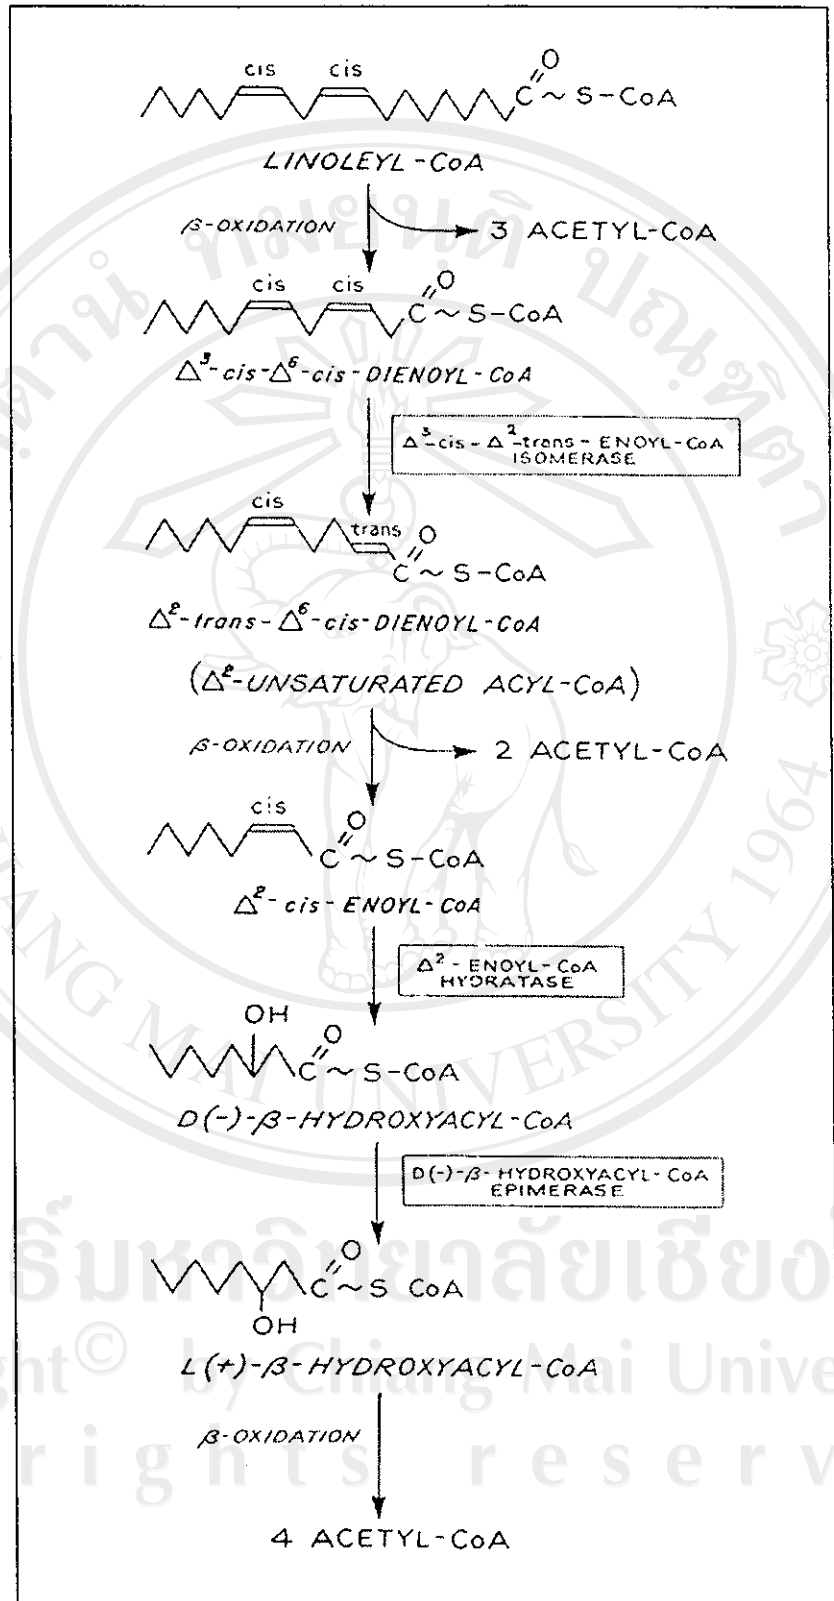 cis cis
O
C ~ S-CoA
LINOLEYL-CoA
β-OXIDATION
3 ACETYL-CoA
cis cis
O
C ~ S-CoA
Δ³-cis-Δ⁶-cis-DIENOYL-CoA
Δ³-cis-Δ²-trans-ENOYL-CoA
ISOMERASE
cis
trans
O
C ~ S-CoA
Δ²-trans-Δ⁶-cis-DIENOYL-CoA
(Δ²-UNSATURATED ACYL-CoA)
β-OXIDATION
2 ACETYL-CoA
cis
O
C ~ S-CoA
Δ²-cis-ENOYL-CoA
Δ²-ENOYL-CoA
HYDRATASE
OH
O
C ~ S-CoA
D(-)-β-HYDROXYACYL-CoA
D(-)-β-HYDROXYACYL-CoA
EPIMERASE
O
C ~ S CoA
OH
L(+)-β-HYDROXYACYL-CoA
β-OXIDATION
4 ACETYL-CoA
MAI UNIVERSITY 1964
มหาวิทยาลัยเชียง
© by Chiang Mai
rights